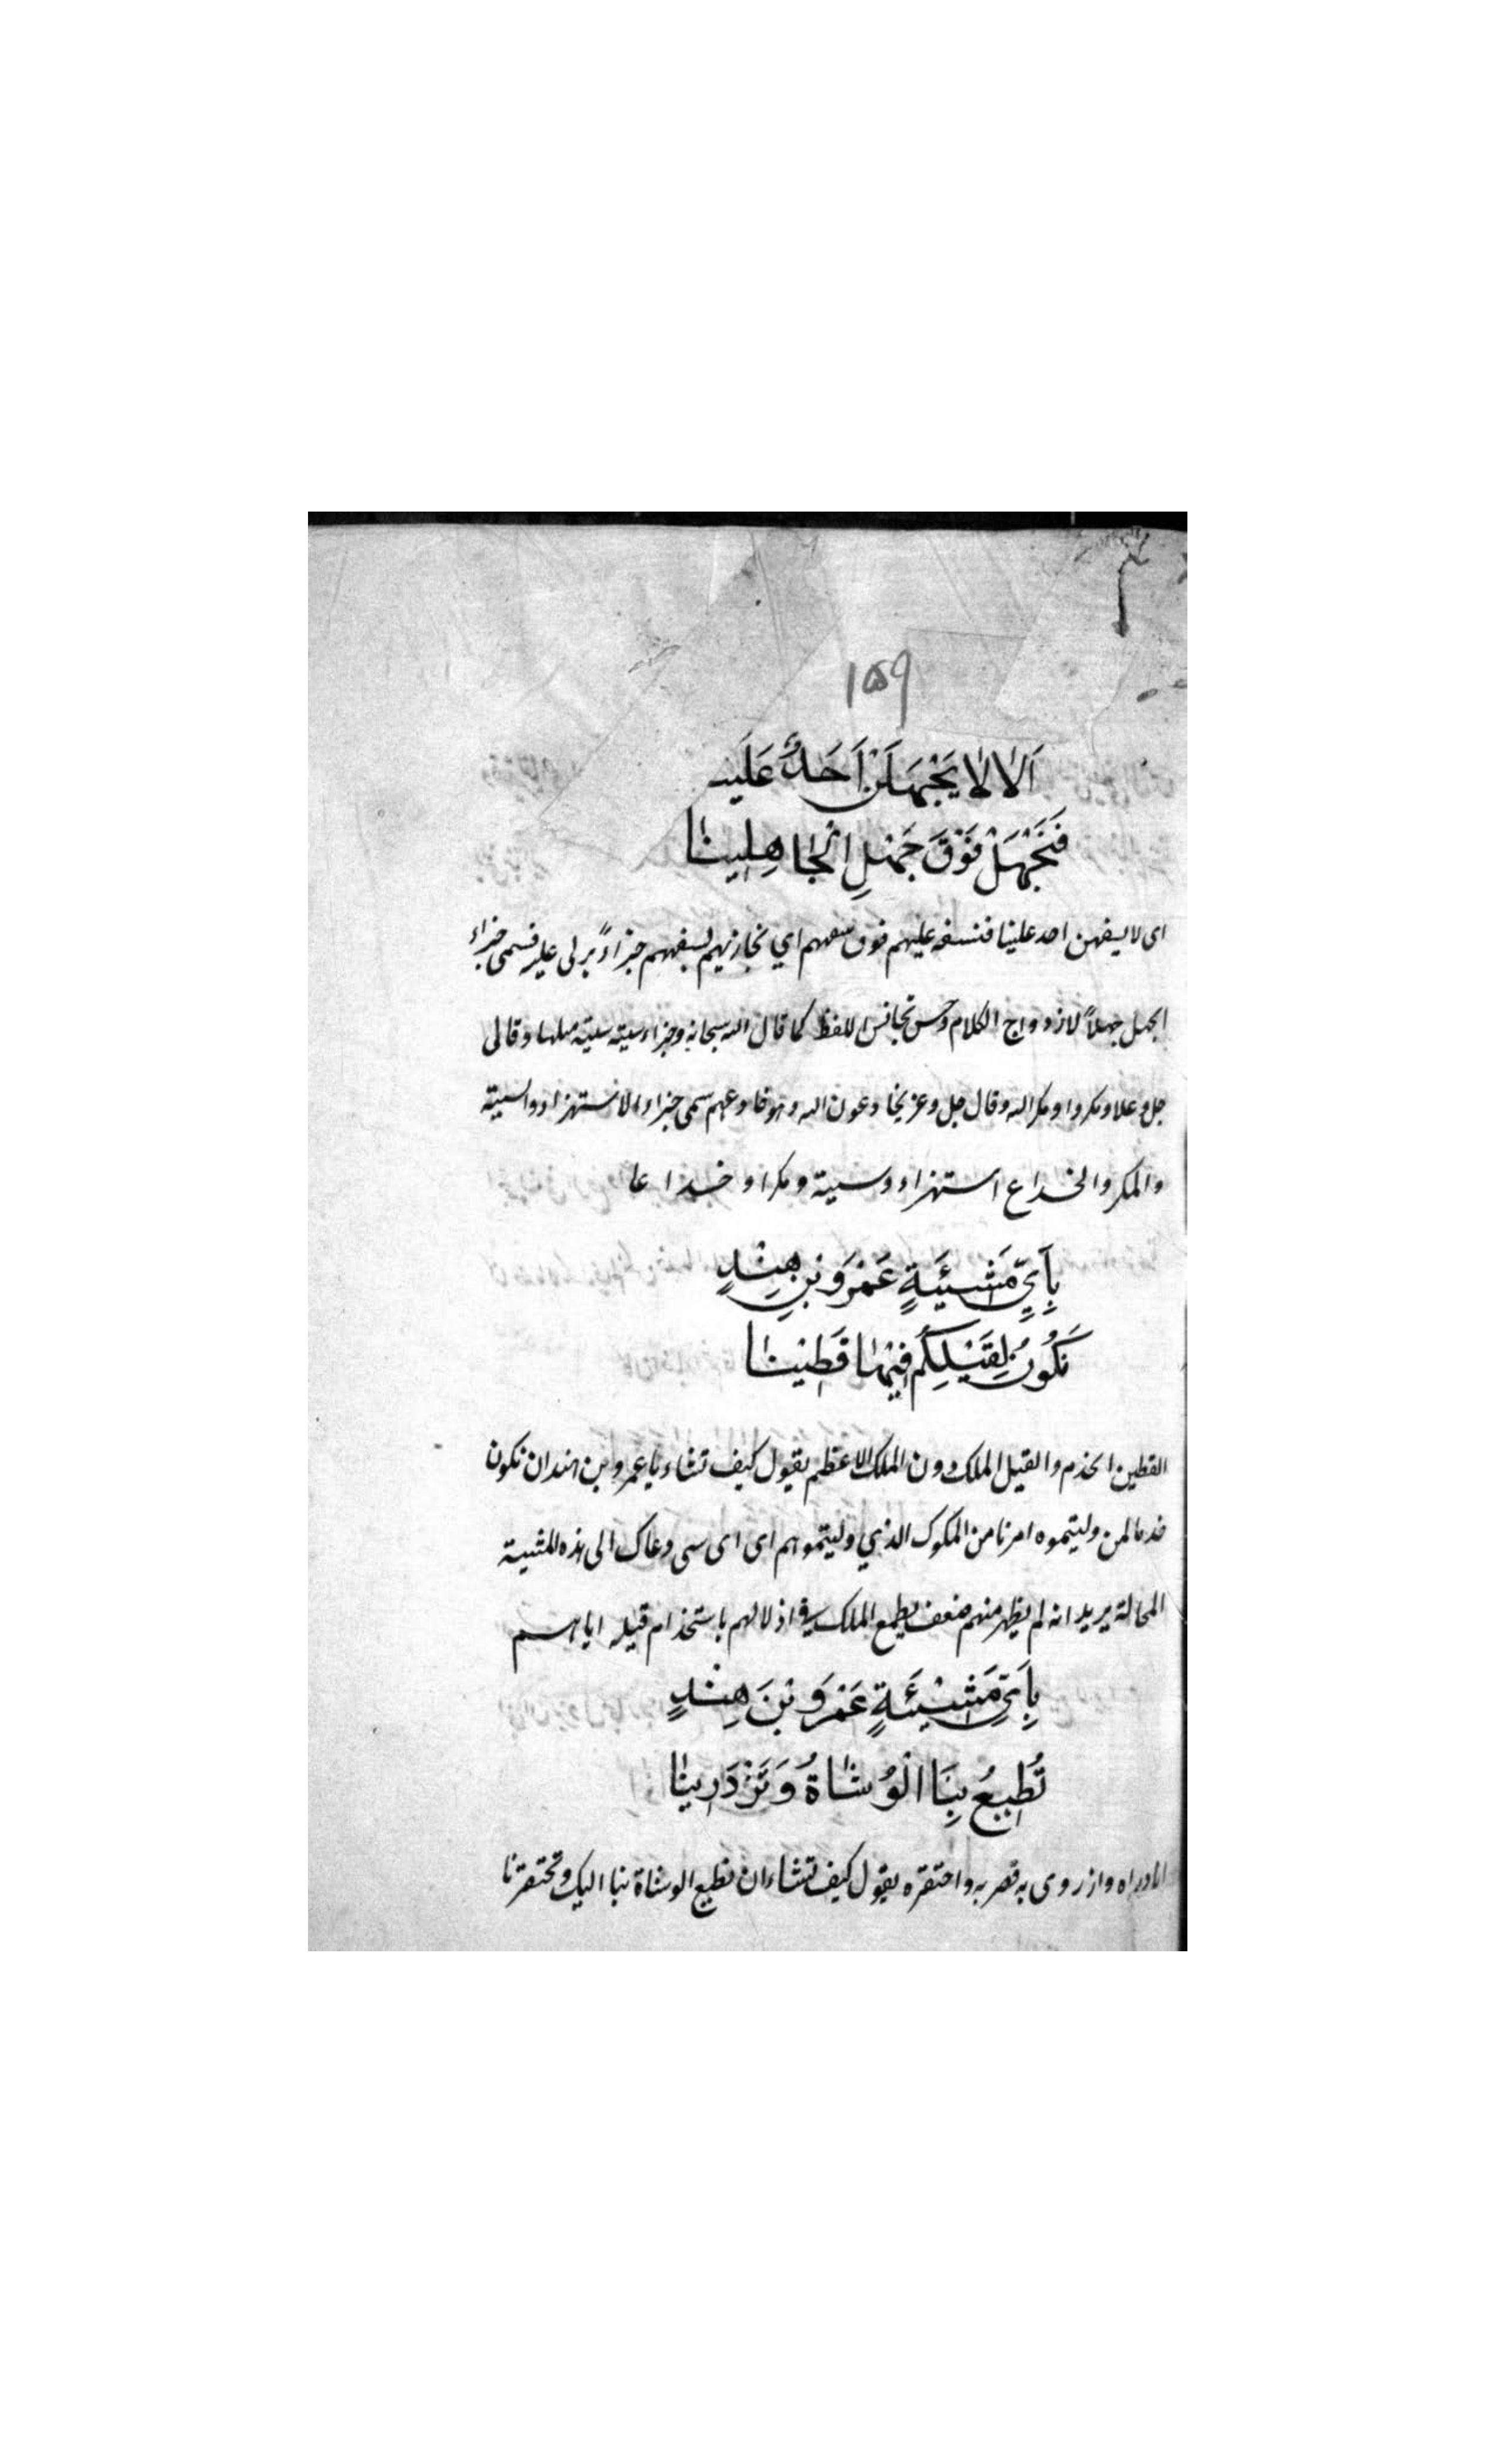 ١٥٩
اَلَا لَا يَجْهَلَنْ اَحَدٌ عَلَيـ
فَنَجْهَلْ فَوْقَ جَهْلِ الْجَاهِلِينَا
اى لا يسفهن احد علينا فنسفه عليهم فوق سفههم اي نجازيهم بسفههم جزاءً يربى عليه فسمى جزاء
الجهل جهلاً لازدواج الكلام وحسن تجانس اللفظ كما قال الله سبحانه وجزاء سيئة سيئة مثلها وقال
جل وعلا ومكروا ومكر الله وقال جل وعز يخادعون الله وهو خادعهم سمى جزاء الاستهزاء والسيئة
والمكر والخداع استهزاء وسيئة ومكرا وخداعا
بِاَيِّ مَشِيئَةٍ عَمْرَو بْنِ هِنْدٍ
نَكُونُ لِقَيْلِكُمْ فِيْهَا قَطِيْنَا
القطين الخدم والقيل الملك دون الملك الاعظم يقول كيف تشاء يا عمرو بن هند ان نكون
خدما لمن وليتموه امرنا من الملوك الذي وليتموهم اى اى شى دعاك الى هذه المشية
المحالة يريد انه لم يظهر منهم ضعف يطمع الملك في اذلالهم باستخدام قيله اياهم
بِاَيِّ مَشِيْئَةٍ عَمْرَو بْنَ هِنْدٍ
تُطِيعُ بِنَا الْوُشَاةُ وَتَزْدَرِينَا
ازدراه وازروى به قصر به واحتقره يقول كيف تشاء ان تطيع الوشاة بنا اليك وتحتقرنا